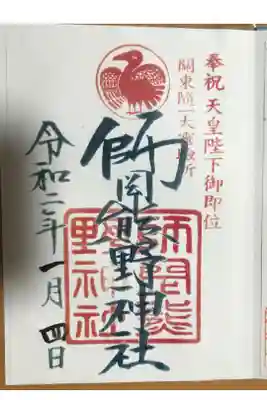 奉祝 天皇陛下御即位
関東随一大霊験所
師岡熊野神社
師岡熊野神社
令和二年一月四日